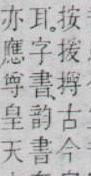 按援搿古今
耳。字書、韵書
亦應尊皇天